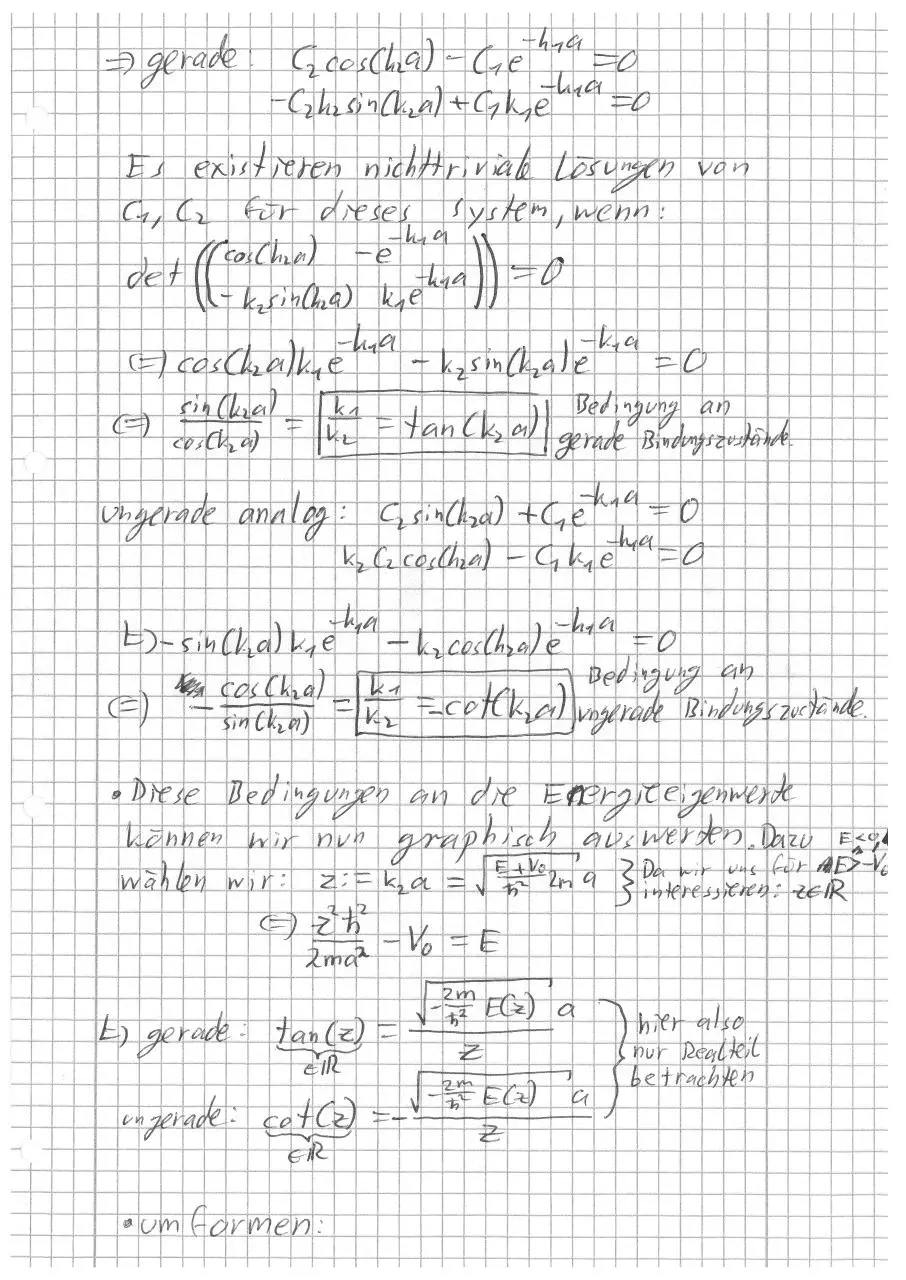 ⇒ gerade: C₂cos(k₂a) − C₁e^(−k₁a) = 0
−C₂k₂sin(k₂a) + C₁k₁e^(−k₁a) = 0
Es existieren nichttriviale Lösungen von
C₁, C₂ für dieses System, wenn:
det ((cos(k₂a) −e^(−k₁a)
−k₂sin(k₂a) k₁e^(−k₁a))) = 0
⇔ cos(k₂a)k₁e^(−k₁a) − k₂sin(k₂a)e^(−k₁a) = 0
⇔ sin(k₂a)/cos(k₂a) = k₁/k₂ = tan(k₂a) Bedingung an
gerade Bindungszustände.
ungerade analog: C₂sin(k₂a) + C₁e^(−k₁a) = 0
k₂C₂cos(k₂a) − C₁k₁e^(−k₁a) = 0
↳ −sin(k₂a)k₁e^(−k₁a) − k₂cos(k₂a)e^(−k₁a) = 0
⇔ −cos(k₂a)/sin(k₂a) = k₁/k₂ = −cot(k₂a) Bedingung an
ungerade Bindungszustände.
• Diese Bedingungen an die Energieeigenwerte
können wir nun graphisch auswerten. Dazu
wählen wir: z := k₂a = √((E+V₀)/ħ² 2m) a } Da wir uns für E<0, ∧ E>−V₀
interessieren: z∈ℝ
⇔ z²ħ²/2ma² − V₀ = E
↳ gerade: tan(z) = √(−2m/ħ² E(z)) a / z } hier also
∈ℝ nur Realteil
betrachten
ungerade: cot(z) = −√(−2m/ħ² E(z)) a / z
∈ℝ
• umformen: